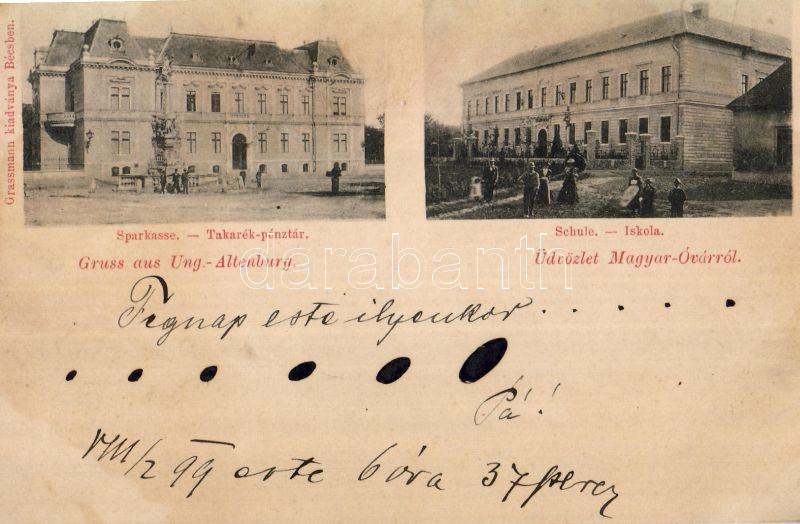 Grassmann kiadványa Bécsben.
Sparkasse. — Takarék-pénztár.
Schule. — Iskola.
Gruss aus Ung.-Altenburg.
Üdvözlet Magyar-Óvárról.
darabanth
Tegnap este ilyenkor . . . . . .
Pá!
VIII/2 99 este 6 óra 37 percz